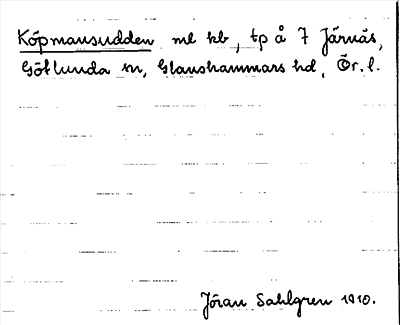 Köpmansudden ml kb, tp å 7 Järnäs,
Götlunda sn, Glanshammars hd, Ör. l.
Jöran Sahlgren 1910.